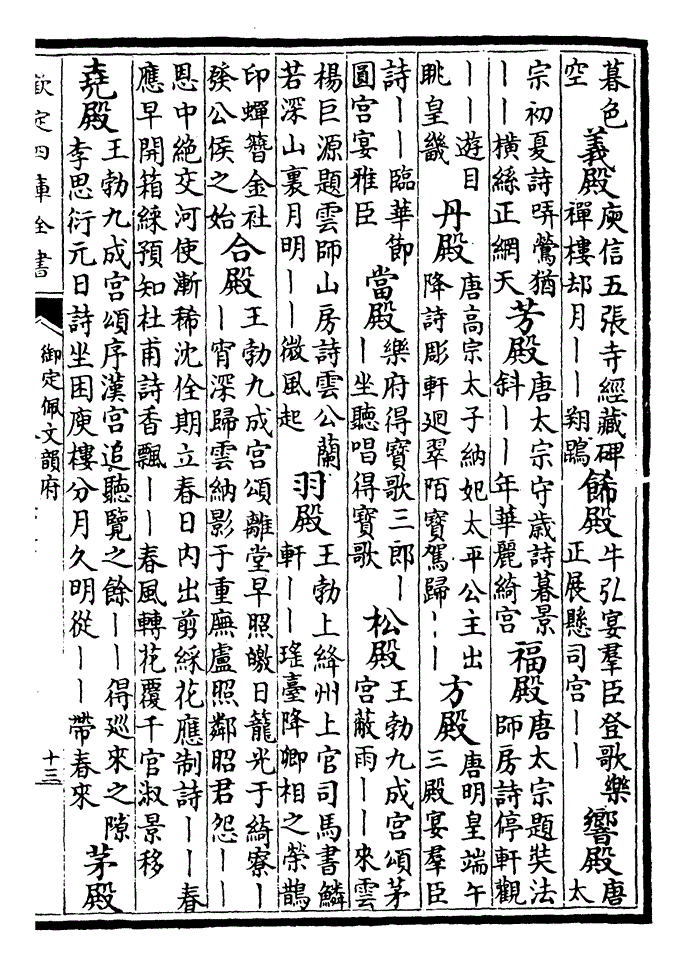 暮色空 義殿 庾信五張寺經藏碑禪樓却月丨丨翔鵾 餙殿 牛弘宴羣臣登歌樂正展懸司宮丨丨 響殿 唐太
宗初夏詩哢鶯猶丨丨橫絲正網天 芳殿 唐太宗守歲詩暮景斜丨丨年華麗綺宮 福殿 唐太宗題奘法師房詩停軒觀
丨丨遊目眺皇畿 丹殿 唐高宗太子納妃太平公主出降詩彫軒廻翠陌寶駕歸丨丨 方殿 唐明皇端午三殿宴羣臣
詩丨丨臨華節圓宮宴雅臣 當殿 樂府得寶歌三郎丨丨坐聽唱得寶歌 松殿 王勃九成宮頌茅宮蔽雨丨丨來雲
楊巨源題雲師山房詩雲公蘭若深山裏月明丨丨微風起 羽殿 王勃上絳州上官司馬書鱗軒丨丨瑤臺降卿相之榮鵲
印蟬簪金社發公侯之始 合殿 王勃九成宮頌離堂早照皦日籠光于綺寮丨丨宵深歸雲納影于重廡盧照鄰昭君怨丨丨
恩中絶交河使漸稀沈佺期立春日内出剪綵花應制詩丨丨春應早開箱練預知杜甫詩香飄丨丨春風轉花覆千官淑景移
堯殿 王勃九成宮頌序漢宮追聽覽之餘丨丨得巡來之隙李思衍元日詩坐困庾樓分月久明從丨丨帶春來 茅殿
欽定四庫全書
御定佩文韻府
十三